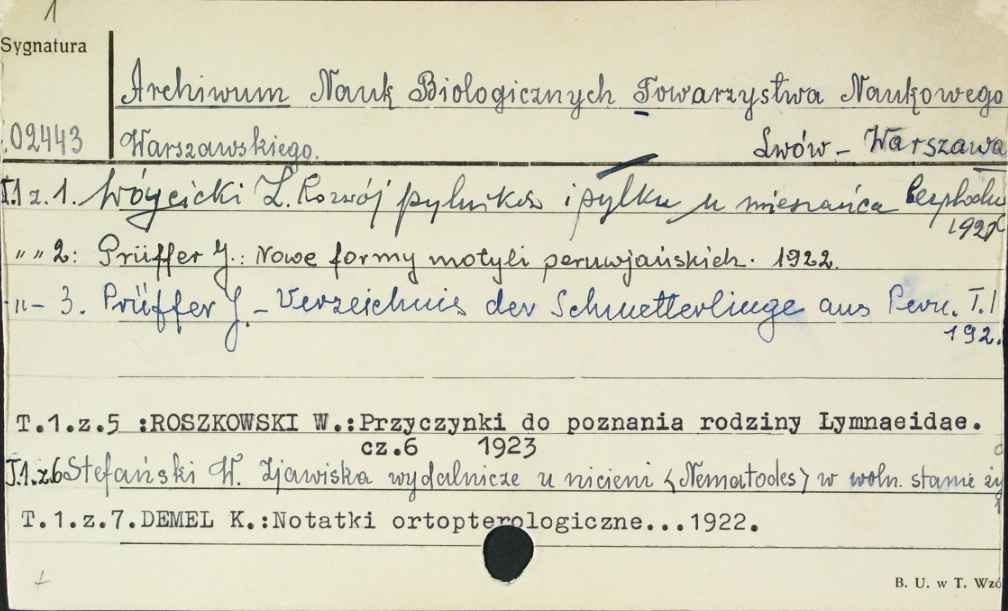 1
Sygnatura
Archiwum Nauk Biologicznych Towarzystwa Naukowego
02443 Warszawskiego. Lwów – Warszawa
T.1 z. 1. Wóycicki Z. Rozwój pylników i pyłku u mieszańca
192
" " 2: Prüffer J.: Nowe formy motyli peruwjańskich. 1922.
-"- 3. Prüffer J. – Verzeichnis der Schmetterlinge aus Peru. T.I
192.
T.1.z.5 :ROSZKOWSKI W.:Przyczynki do poznania rodziny Lymnaeidae.
cz.6 1923
T.1.z6 Stefański W. Zjawiska wydalnicze u nicieni (Nematodes) w woln. stanie ży
T.1.z.7.DEMEL K.:Notatki ortopterologiczne...1922.
B. U. w T. Wzó